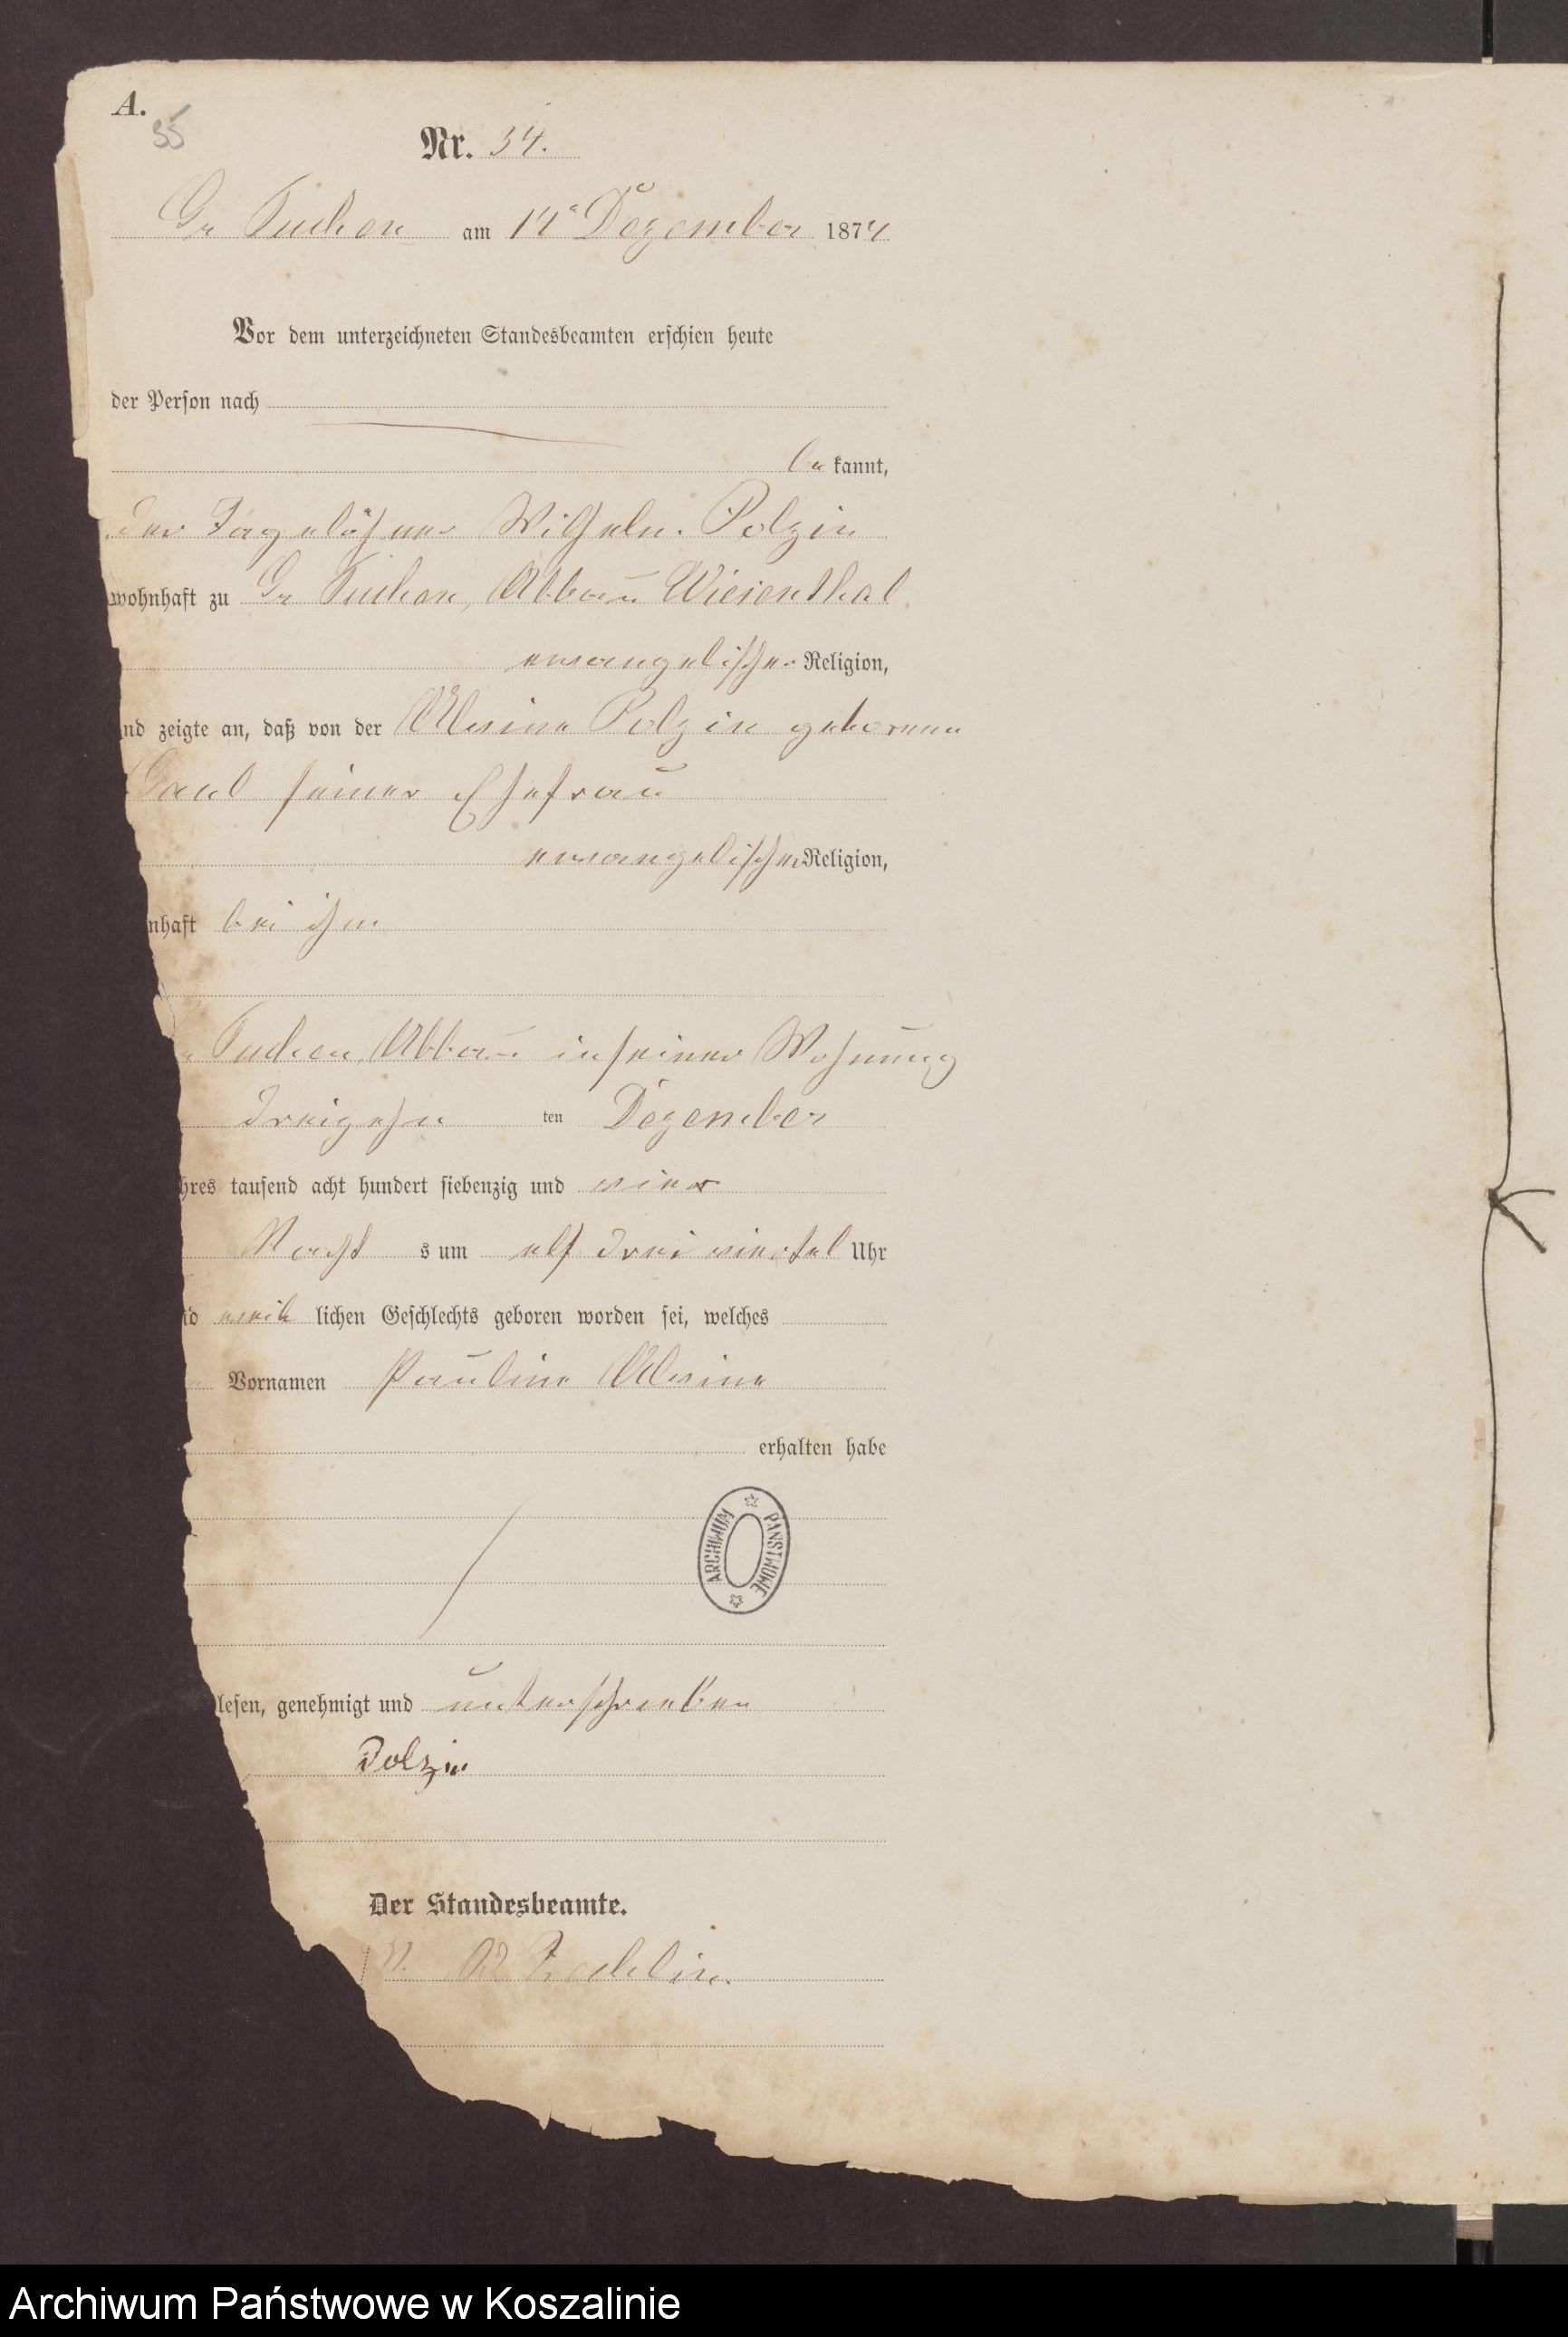 A.
35
Nr. 34.
Gr Tuchen am 14 Dezember 1874
Vor dem unterzeichneten Standesbeamten erschien heute
der Person nach
be kannt,
der Tagelöhner Wilhelm Polzin
wohnhaft zu Gr Tuchen, Abbau Wiesenthal
evangelischer Religion,
nd zeigte an, daß von der Albertine Polzin geborenen
seiner Ehefrau
evangelischer Religion,
nhaft bei ihm
Tuchen Abbau in seiner Wohnung
dreizehn ten Dezember
hres tausend acht hundert siebenzig und vier
Nacht s um elf drei viertel Uhr
id weib lichen Geschlechts geboren worden sei, welches
Vornamen Pauline
erhalten habe
ARCHIWUM PAŃSTWOWE
lesen, genehmigt und unterschrieben
Polzin
Der Standesbeamte.
Archiwum Państwowe w Koszalinie